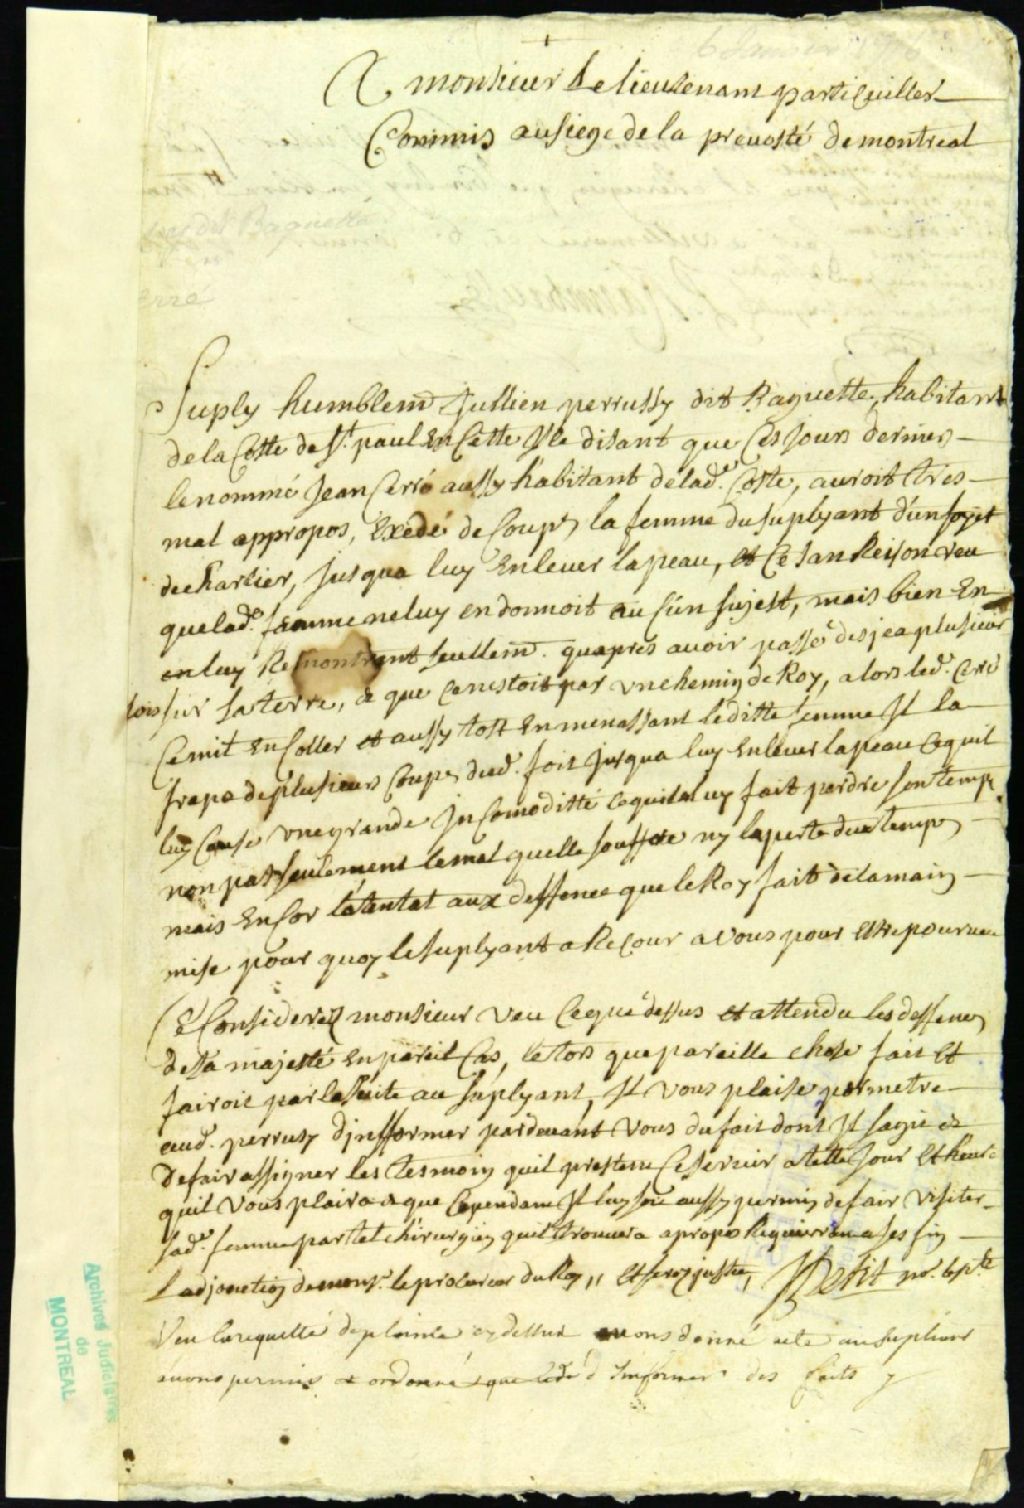 A monsieur Le lieutenant particuiller
Commis au siege de la prevosté de montreal
Suply humblemt Jullien perrussy dit Baguette, habitant
de la Coste de St. paul En Cette Jsle disant que Ces jours derniers
le nommé Jean Cerré aussy habitant de lade. Coste, auroit tres
mal appropos, Exedé de Coups la femme du suplyant d'un foȳet
de Chartier, jusqua luy Enlever la peau, et Ce sans Reison veu
que lade. femme ne luy en donnoit aucun sujest, mais bien En
en luy Remontrant seullemt. quapres avoir passé desja plusieur
fois sur sa terre, & que cenestoit par un chemin de Roy, alors led. Cerré
Ce mit En Coller et aussy tost En menassant leditte femme Jl la
frapa de plusieurs Coups dud. foit jusqua luy Enlever la peau Ce quil
luy Cause une grande JnComoditté Ce quil luy fait perdre son temps
non pas seulement le mal quelle souffre ny la perte du temps
mais EnCor l'atentat aux deffence que le Roy fait de la main
mise pour quoy le suplyant a ReCour a vous pour Estre pourveu
Ce Consideréz monsieur veu Ce que dessus et attendu les deffences
de sa majesté En pareil Cas, le tors que pareille chose fait et
fairoit par la suite au suplyant, Jl vous plaise permetre
aud. perrusy d'jnfformer pardevant vous du fait dont Jl sagis &
de fair assigner les tesmoins quil pretend Ce servir a telle jour et heure
quil vous plaira & que Cependant Jl luy soit aussy permis de fair visiter
sade. femme par tel chirurgien quil trouvera apropos Requerrant a ses fin
L'adjonction de monsr. le procureur du Roy, et serez justice, Petit pr. le pt.
Veu la requette de plainte cy dessus avons donné acte au supliant
avons permis & ordonné que led. d'Informer des faits y
Archives Judiciaires
de
MONTREAL